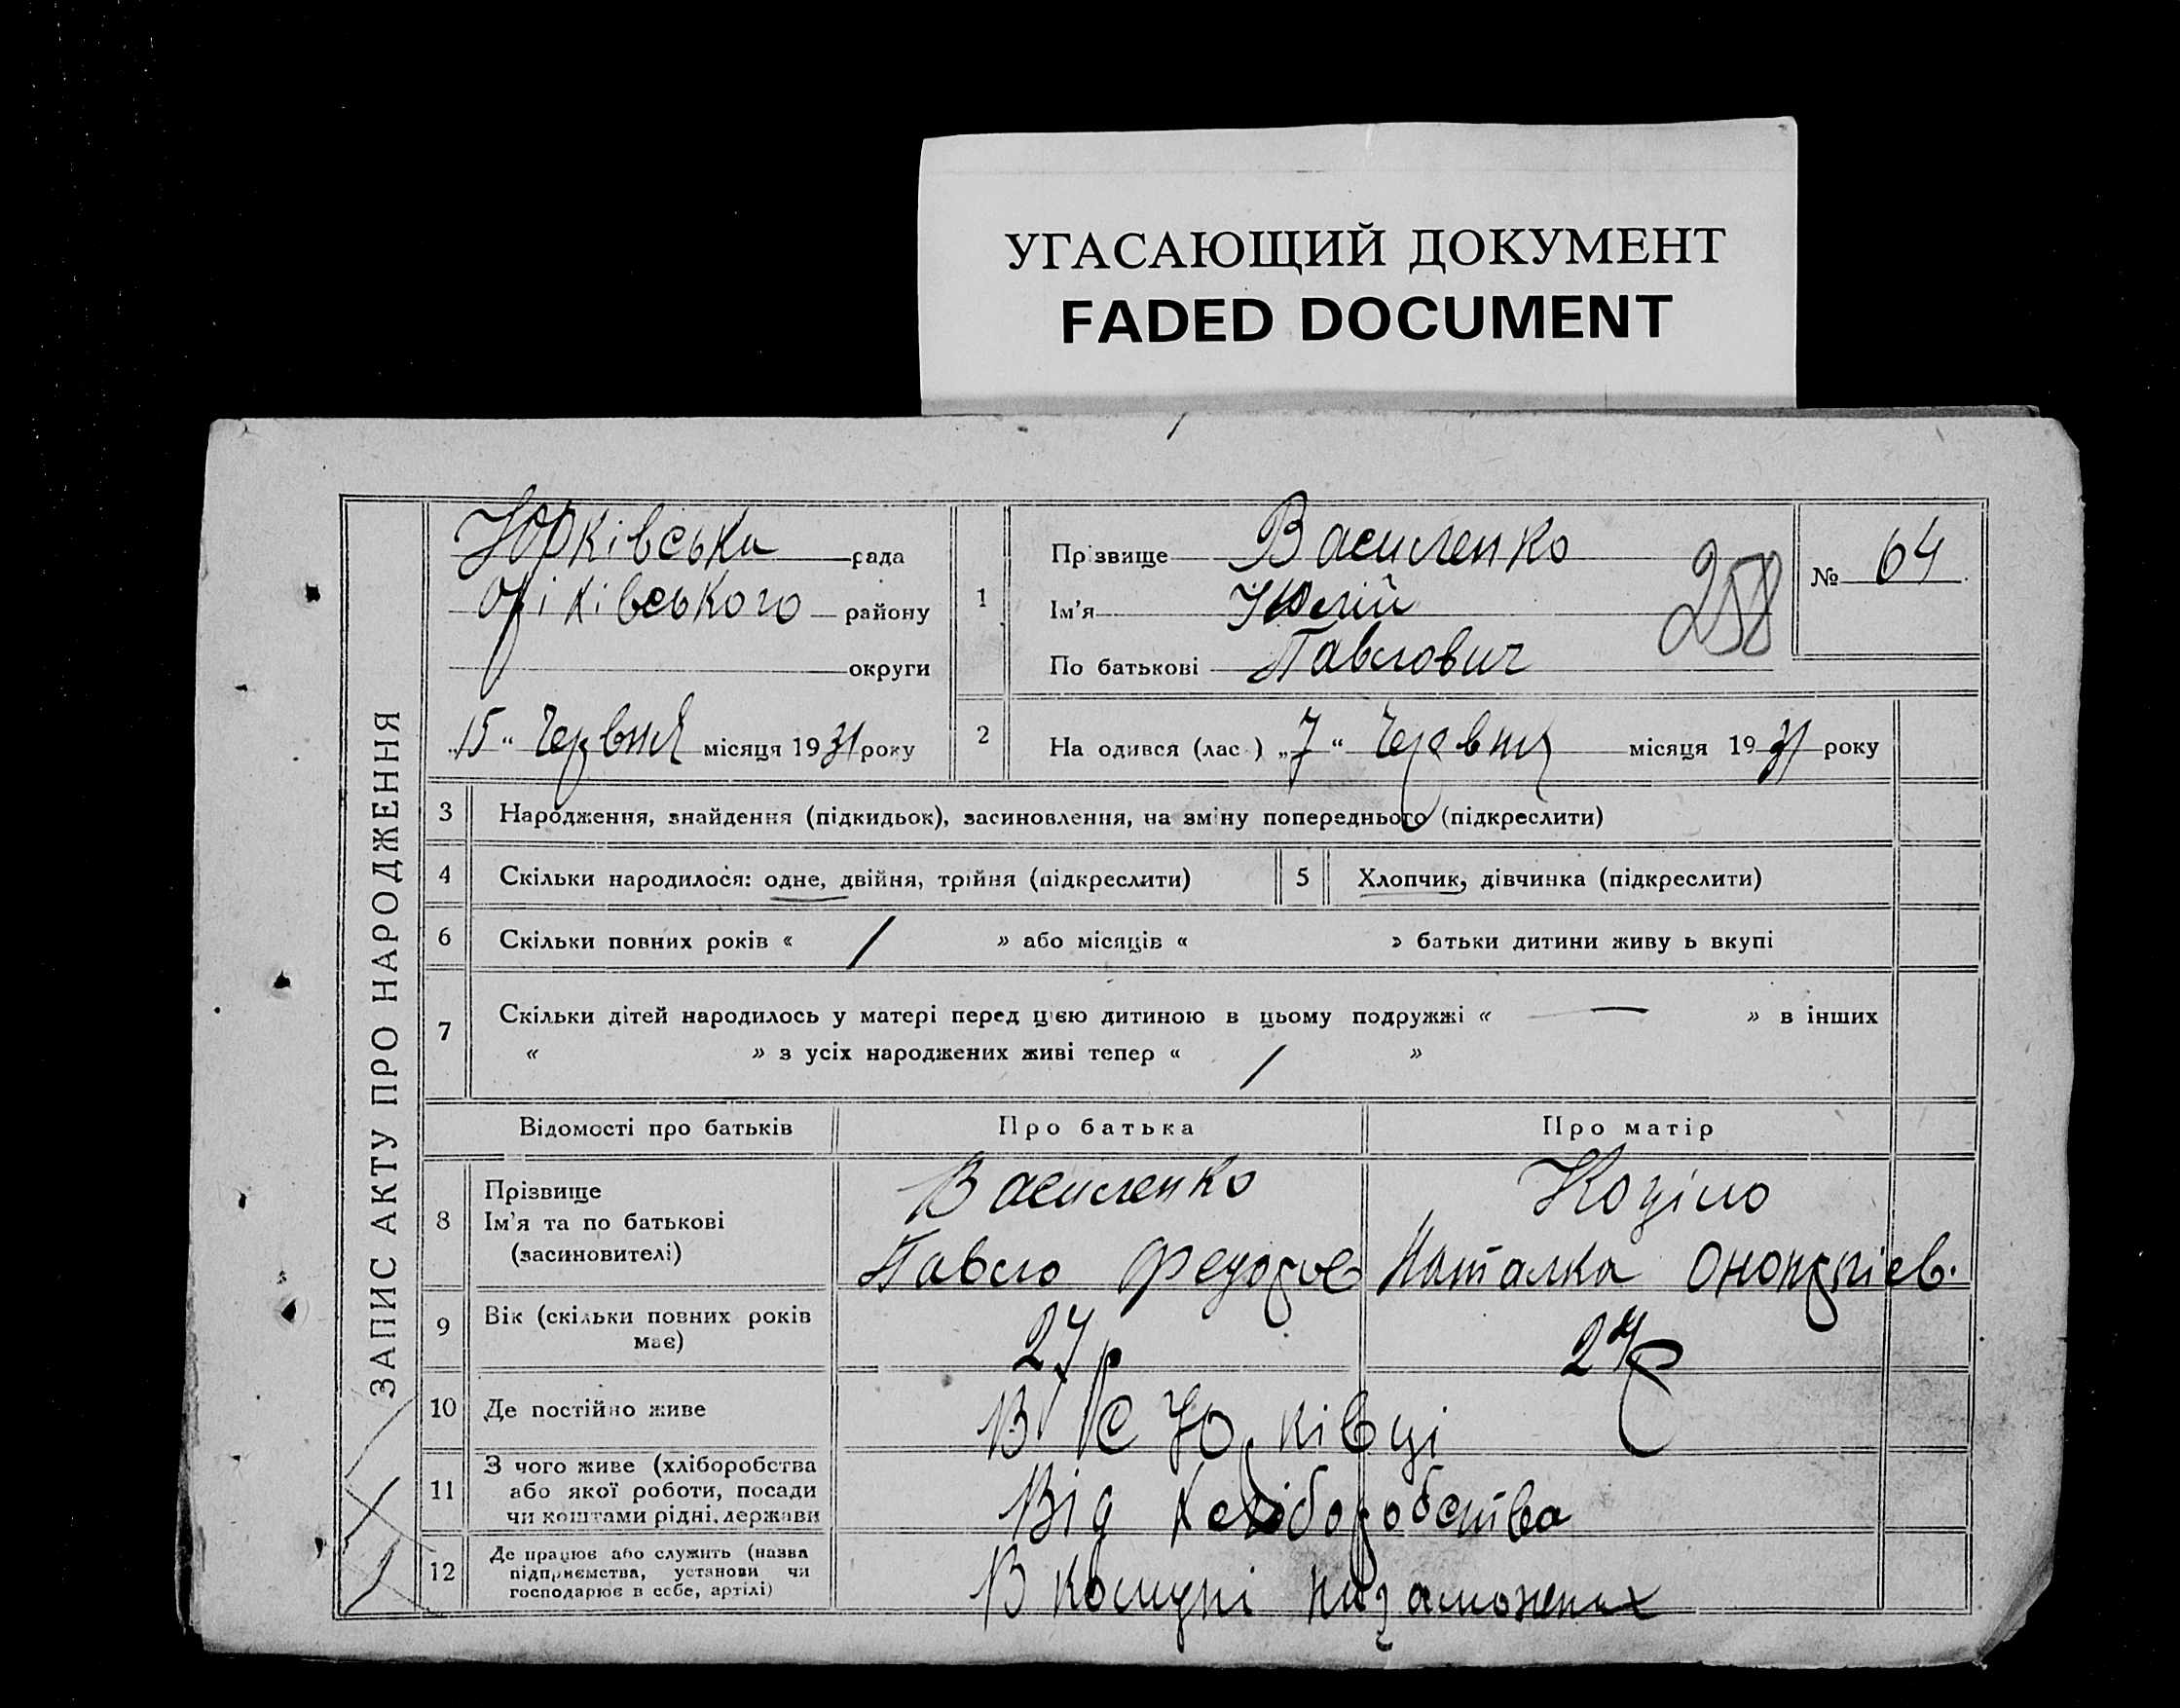 УГАСАЮЩИЙ ДОКУМЕНТ
FADED DOCUMENT
ЗАПИС АКТУ ПРО НАРОДЖЕННЯ
Юрківська рада
Оріхівського району
округи
„15“ Червня місяця 1931 року
1
Прізвище Василенко
Ім'я Юлій
По батькові Павлович
258
№ 64
2
На одився (лас ) „7“ Червня місяця 1931 року
3 Народження, знайдення (підкидьок), засиновлення, на зміну попереднього (підкреслити)
4 Скільки народилося: одне, двійня, трійня (підкреслити)
5 Хлопчик, дівчинка (підкреслити)
6 Скільки повних років « / » або місяців « » батьки дитини живу ь вкупі
7 Скільки дітей народилось у матері перед цією дитиною в цьому подружжі « — » в інших
« » з усіх народжених живі тепер « / »
Відомості про батьків Про батька Про матір
8 Прізвище
Ім'я та по батькові
(засиновителі)
Василенко
Павло Федоров
Коціло
Наталка
9 Вік (скільки повних років
має)
27 р
24 р
10 Де постійно живе
В с Юрківці
11 З чого живе (хліборобства
або якої роботи, посади
чи коштами рідні, держави
Від Хліборобства
12 Де працює або служить (назва
підприємства, установи чи
господарює в себе, артілі)
В комуні незаможних